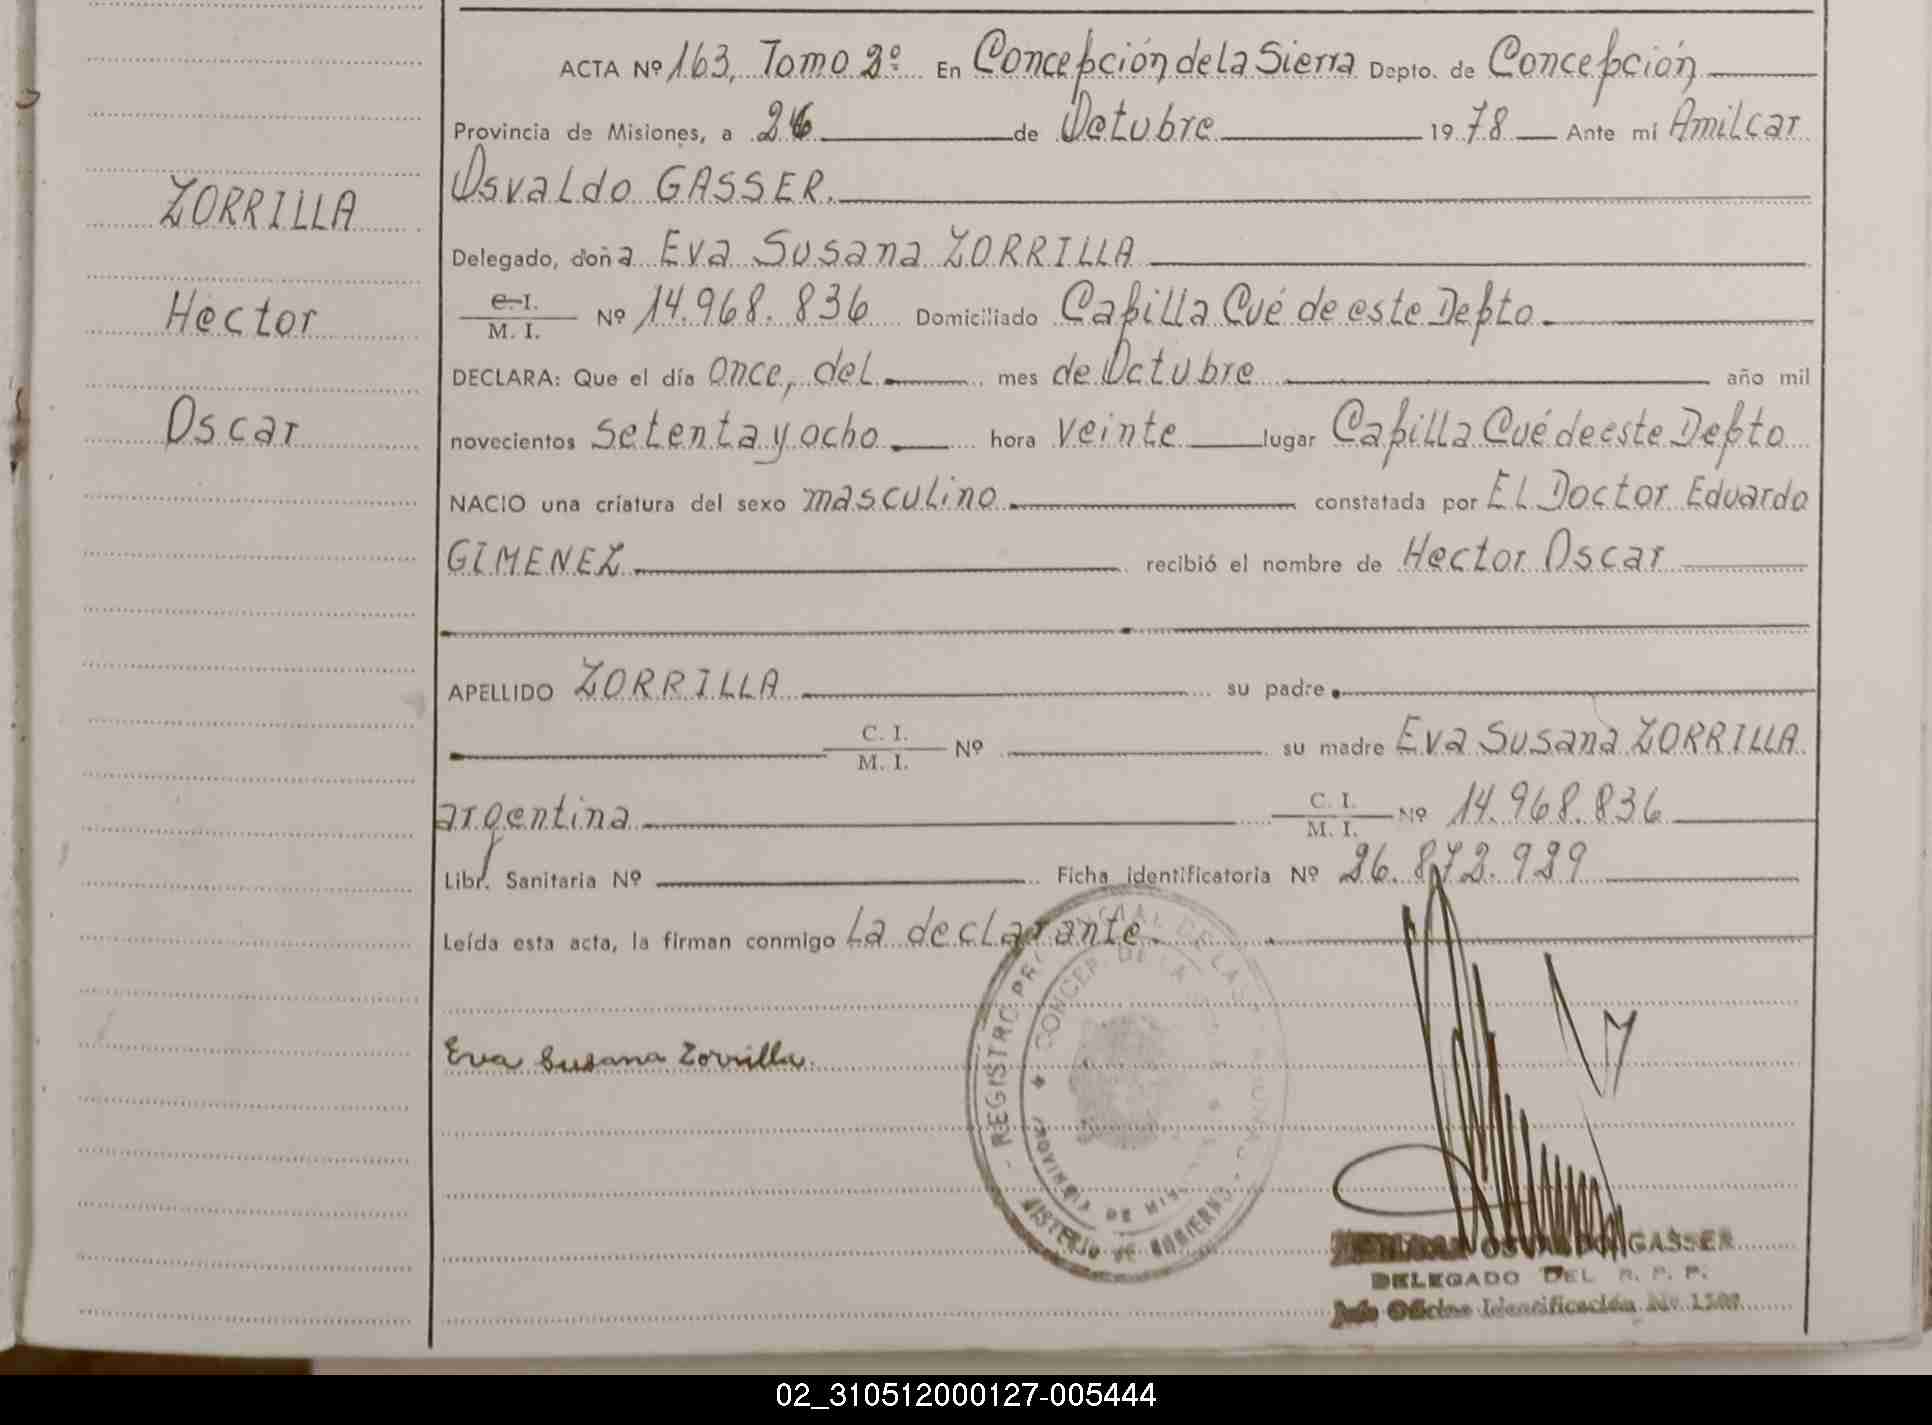 ACTA Nº 163, Tomo 2º En Concepción de la Sierra Depto. de Concepción
Provincia de Misiones, a de Octubre 1978 Ante mí Amilcar
Osvaldo GASSER.
ZORRILLA
Delegado, doña Eva Susana ZORRILLA
Hector
C.I.
M. I. Nº 14.968.836 Domiciliado Capilla Cué de este Depto
DECLARA: Que el día once, del mes de Octubre año mil
Oscar
novecientos setenta y ocho hora veinte lugar Capilla Cué de este Depto
NACIO una criatura del sexo masculino constatada por El Doctor Eduardo
GIMENEZ recibió el nombre de Hector Oscar
APELLIDO ZORRILLA su padre
C. I.
M. I. Nº su madre Eva Susana ZORRILLA
argentina C. I.
M. I. Nº 14.968.836
Libr. Sanitaria Nº Ficha identificatoria Nº 26.872.929
Leída esta acta, la firman conmigo La declarante.
Eva Susana Zorrilla.
REGISTRO PROVINCIAL DE LAS
CONCEP. DE LA
PROVINCIA DE
MINISTERIO DE GOBIERNO
OSVALDO GASSER
DELEGADO DEL R. P. P.
Jefe Oficina Identificación Nº
02_310512000127-005444